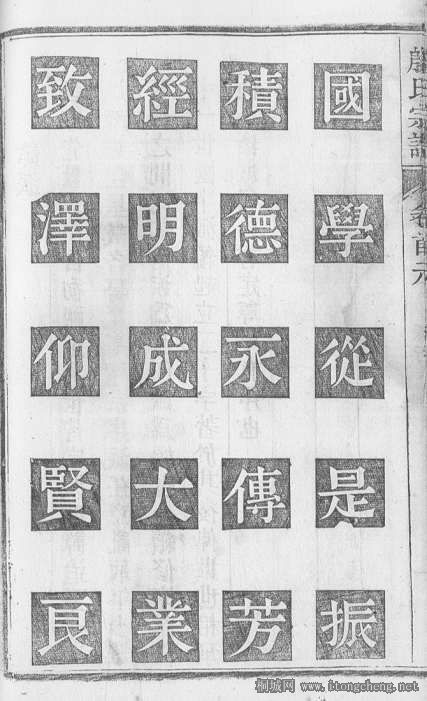 氏宗譜
卷首元
國學從是振
積德永傳芳
經明成大業
致澤仰賢良
桐城网 www.itongcheng.net